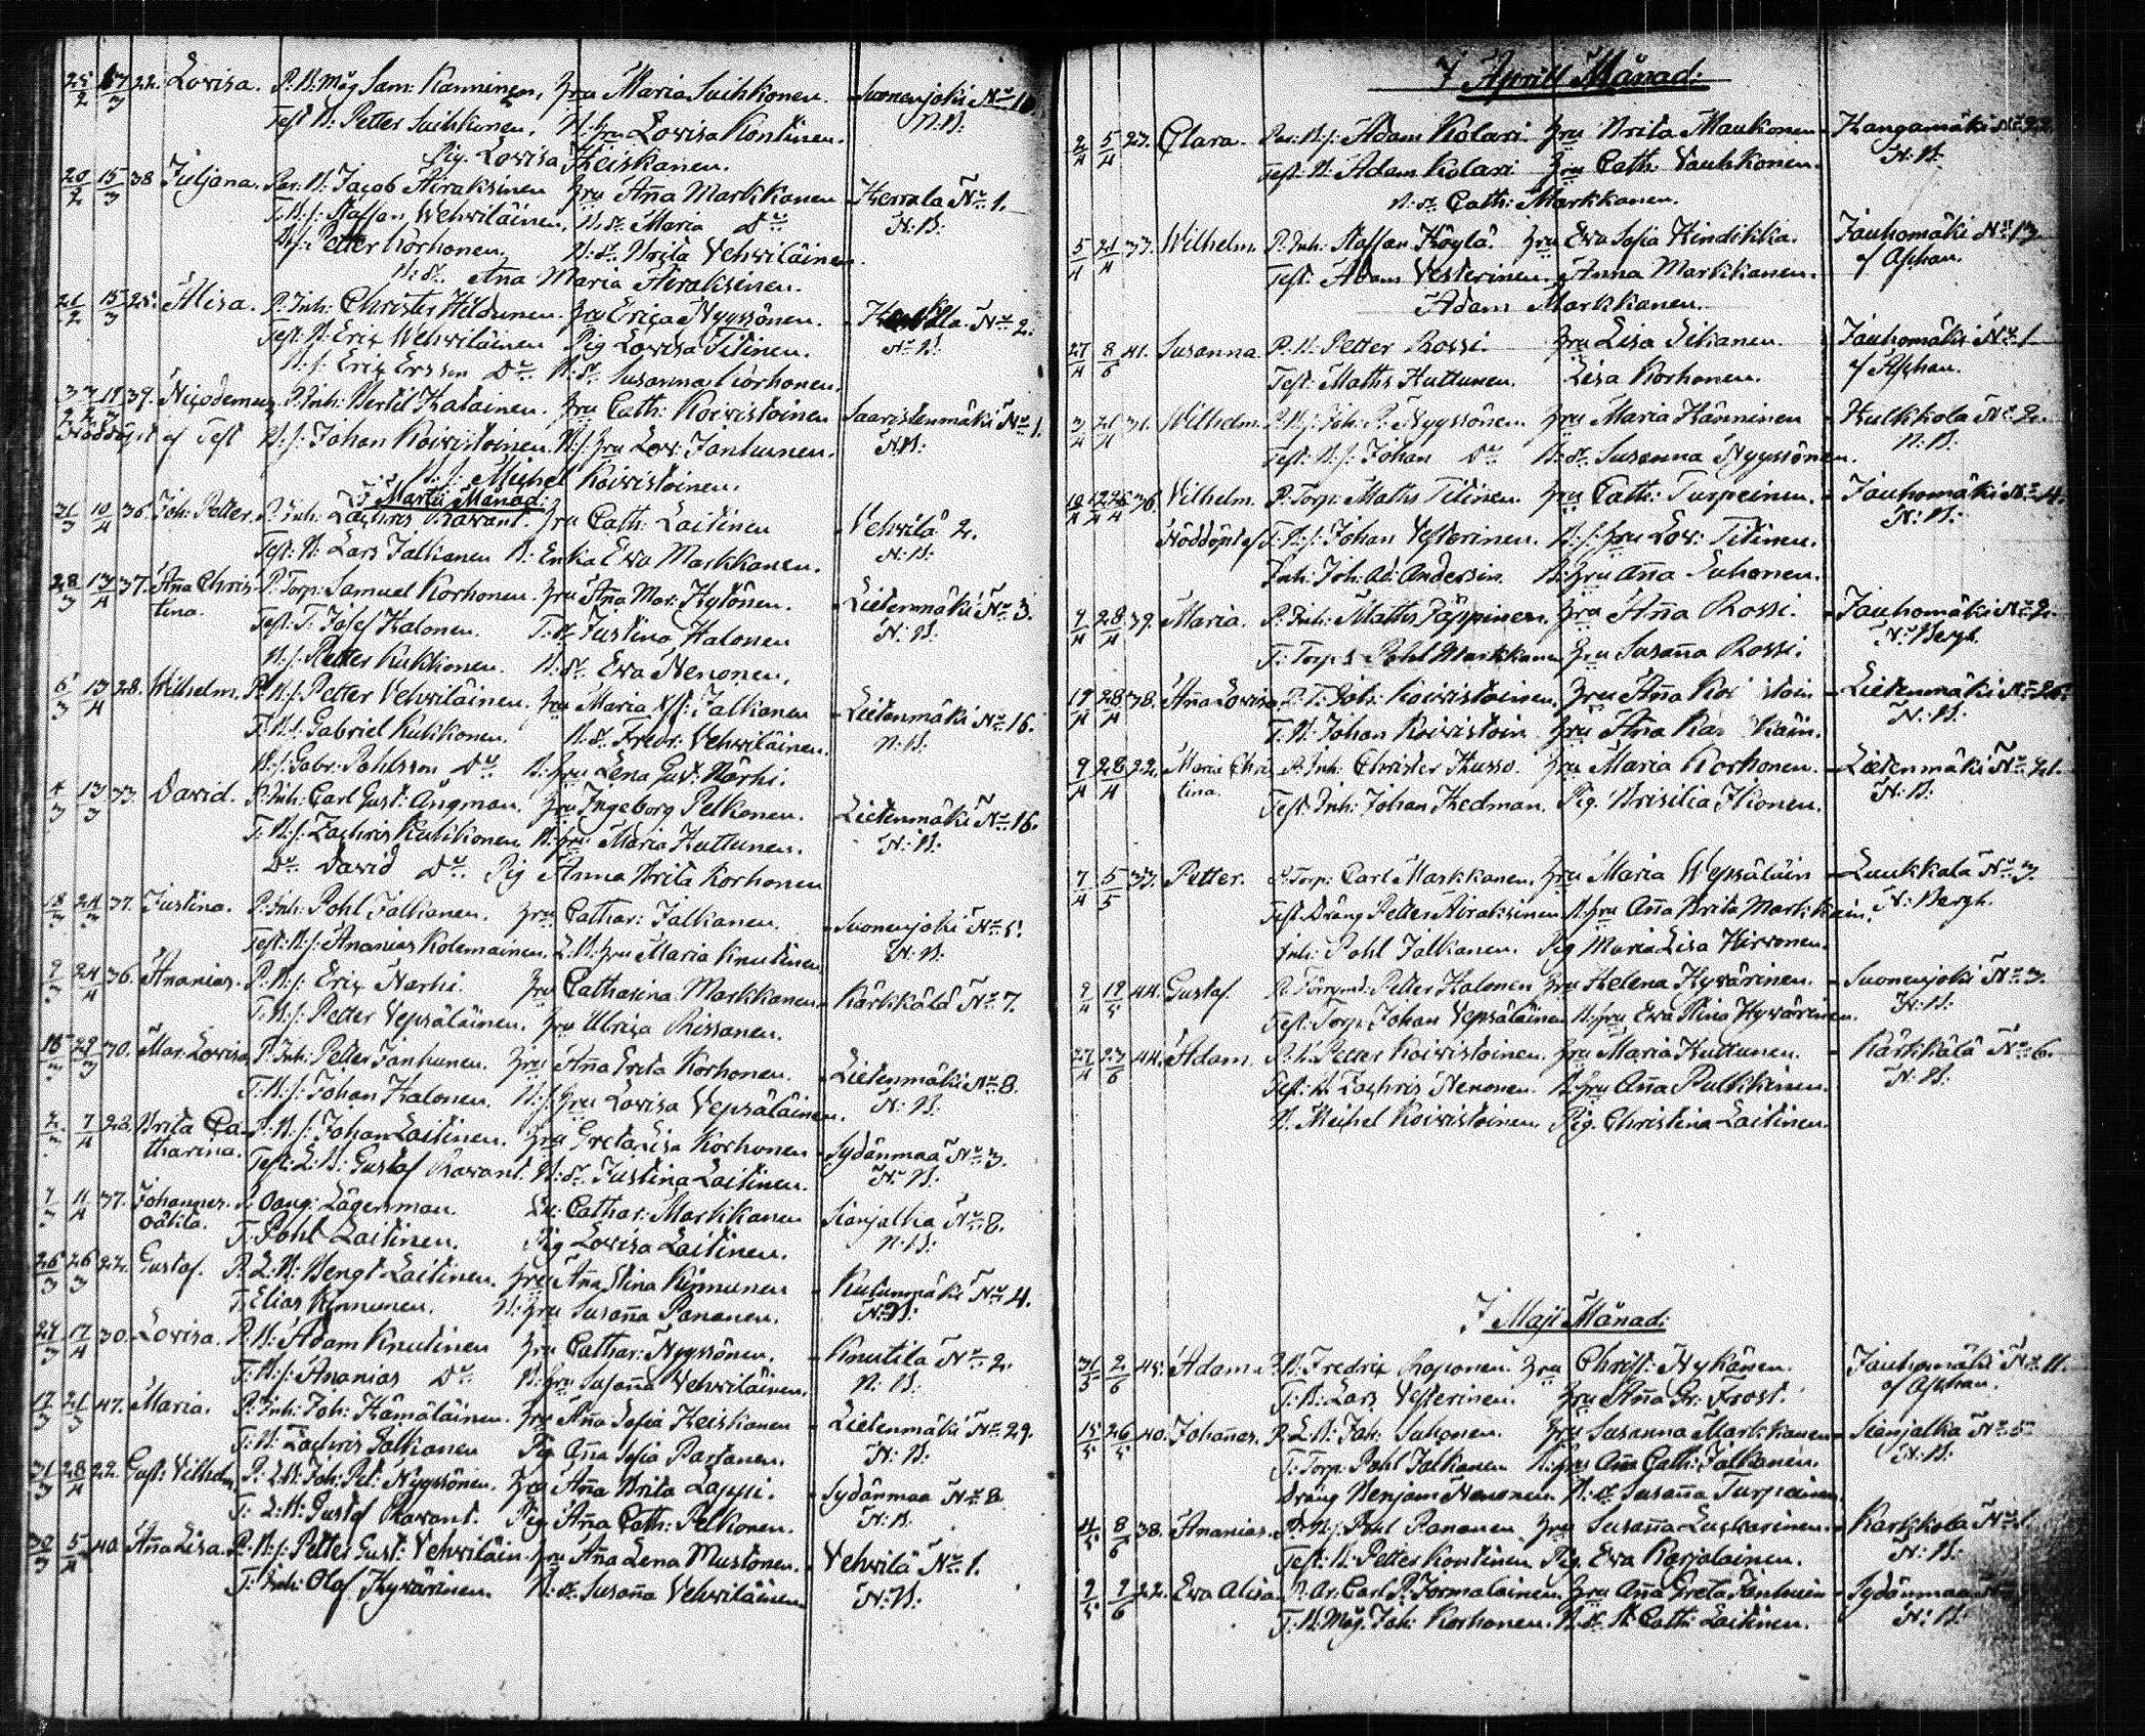 25/2 17/3 22. Lovisa. P. B: Måg Sam: Kanninen, Hru Maria Suihkonen. Suonenjoki No 1
Test B: Petter Suihkonen, B: hru Lovisa Kontinen. N:B:
Pig. Lovisa Keiskanen.
20/2 15/3 38 Juljana. Par: B. Jacob Airaksinen hru Aña Markkanen Herrala No 1.
T: B: s: Staffan Vehviläinen, B: dr Maria Do N:B:
B: s: Petter Korhonen, B: dr. Brita Vehviläinen.
B: dr. Aña Maria Airaksinen.
21/2 15/3 25. Alisa. P. Inh: Christer Hildunen hru Erica Nyyssönen. No 2.
Test: B: Eric Wehviläinen Pig Lovisa Titinen. N:B:
B: s: Eric Ersson Do B: dr. Susanna Korhonen.
39. Nicodemus P. Inh: Bertil Hatainen. hru Cath: Koivistoinen Saaristenmäki No 1.
Nöddöpt af Test B: s: Johan Koivistoinen B: s: hru Lov: Janhunen. N:B:
B: s: Michel Koivistoinen.
I Martii Månad:
31/3 10/4 36. Joh: Petter. P. Inh: Zachris Ravant. hru Cath: Laitinen Vehvilä 2.
Test: B: Lars Jalkanen B: Enka Ewa Markkanen. N:B:
28/3 13/4 37. Aña Chris- P. Torp: Samuel Korhonen. hru Aña Mar: Hytönen. Lietenmäki No 3.
tina. Test: T: Josef Halonen. T: dr Justina Halonen N:B:
B: s: Petter Kukkonen. B: dr. Ewa Nenonen.
6/3 13/4 28. Wilhelm. P. B: s: Petter Vehviläinen. hru Maria Jalkanen Lietenmäki No 16.
T: B: s: Gabriel Kukkonen. B: dr. Fredr: Vehviläinen. N:B:
B: s: Gabr: Pohlsson Do B: hru Lena Gust: Närhi.
4/3 13/3 33. David. P. Inh: Carl Gust: Ångman. hru Ingeborg Pelkonen. Lietenmäki No 16.
T: B: s: Zachris Kukkonen B: hru Maria Huttunen. N:B:
Do David Do Pig Anna Brita Korhonen
18/3 24/3 37. Justina. P. Inh: Pohl Jalkanen. hru Cathar: Jalkanen. Suonenjoki No 5.
Test: B: s: Ananias Kolemainen. L: B: hru Maria Knutinen N:B:
9/3 24/4 36. Ananias. P. B: s: Eric Narhi. hru Catharina Markkanen Kärkkälä No 7.
T: B: s: Petter Vepsäläinen. hru Ulrica Rissanen.
29/3 30. Mar: Lovisa P. Inh: Petter Janhunen. hru Aña Brita Korhonen. Lietenmäki No 8.
T: B: s: Johan Halonen. B: s: hru Lovisa Vepsäläinen. N:B:
7/4 28. Brita Ca- P. B: s: Johan Laitinen. hru Greta Lisa Korhonen Sydänmaa No 3.
tharina. Test: L: B: Gustaf Ravant. B: dr. Justina Laitinen. N:B:
7/3 11/4 37. Johannes. Lägersman. Cathar: Markkanen Sianjalka No 8.
oäkta. T: Pohl Laitinen. Pig Lovisa Laitinen. N:B:
26/3 26/3 22. Gustaf. P. L: B: Bengt Laitinen. hru Aña Stina Kinnunen Kutunmäki No 4.
T: Elias Kinnunen. B: hru Susaña Pananen. N:B:
24/3 17/4 30. Lovisa. P. B: Adam Knutinen hru Cathar: Nyyssönen. Knutila No 2.
T: B: s: Ananias Do B: hru Susaña Vehviläinen. N:B:
17/3 21/3 47. Maria. P. Inh: Joh: Hämäläinen. hru Aña Sofia Heiskanen Lietenmäki No 29.
T: B: Zachris Jalkanen Pig Aña Sofia Partanen. N:B:
31/3 28/4 22. Gust: Vilhelm P. L: B: Joh: Pet: Nyyssönen. hru Aña Brita Lappi. Sydänmaa No 8.
T: L: B: Gustaf Ravant. Pig Aña Cath: Pelkonen. N:B:
30/3 5/4 40. Aña Lisa. P. B: s: Petter Gust: Vehviläin. hru Aña Lena Mustonen. Vehvilä No 1.
T: Inh: Olof Hyvärinen. B: dr. Susaña Vehviläinen N:B:
I Aprill Månad:
2/4 5/4 27. Clara. Par: B: s: Adam Kolari hru Brita Maukonen Kangamäki No 22
Test: B: Adam Kolari hru Cath: Vauhkonen. N:B:
B: dr Cath: Markkanen.
5/4 21/4 33. Wilhelm. P. Inh: Staffan Köylä. hru Ewa Sofia Hindikka. Jauhomäki No 13
Test: Adam Vesterinen. Anna Markkanen. af Asphan.
Adam Markkanen.
27/4 8/6 41. Susanna. P. B: Petter Rossi. hru Lisa Tikanen. Jauhomäki No 1
Test: Maths Huttunen. Lisa Korhonen. af Asphan.
3/4 21/4 31. Wilhelm. P. B: s: Joh: P: Nyyssönen hru Maria Hänninen Kulkkola No 2.
Test: B: s: Johan Do B: dr. Susanna Nyyssönen. N:B:
36. Vilhelm. P. Torp: Maths Titinen. hru Cath: Turpeinen. Jauhomäki No 4.
Nöddöpt af T: B: s: Johan Vesterinen. B: s: hru Lov: Titinen. N:B:
Inh: Joh: Ad: Andersin. B: hru Aña Suhonen.
7/4 28/4 39. Maria. P. Inh: Maths Päppinen. hru Aña Rossi. Jauhomäki No 2.
T: Torp: s Pohl Markkanen hru Susaña Rossi. N: Bergh.
19/4 28/4 38. Aña Lovisa P. T: Joh: Koivistoinen. hru Aña Koi stoin Lietenmäki No 26.
T: B: Johan Koivistoin hru Aña N:B:
9/4 28/4 22. Maria Chris- P. Inh: Christer Husso. hru Maria Korhonen. Lietenmäki No 21.
tina. Test: Inh: Johan Hedman. Pig. Brisilia Hionen. N:B:
7/4 5/5 33. Petter. P. Torp: Carl Markkanen. hru Maria Wepsäläin Luukkala No 3.
Test: Dräng Petter Airaksinen B: hru Aña Brita Markkain. N: Bergh.
Inh: Pohl Jalkanen. Pig Maria Lisa Hirvonen.
9/4 19/5 44. Gustaf. P. Förrymd: Petter Halonen hru Helena Hyvärinen. Suonenjoki No 3.
Test: Torp: Johan Vepsäläinen B: hru Ewa Stina Hyvärinen. N:B:
27/4 23/6 44. Adam. P. B: Petter Koivistoinen. hru Maria Huttunen. Kärkkälä No 6.
Test: B: Zachris Nenonen. B: hru Aña Pulkkinen. N:B:
B. Michel Koivistoinen. Pig. Christina Laitinen.
I Maji Månad:
31/5 2/6 45. Adam. P. B: Fredric Roponen. hru Christ: Nykänen. Jauhomäki No 11.
T: B: Lars Vesterinen. hru Aña Gr: Frost. af Asphan.
15/5 26/5 40. Johañes. P. L: B: Joh: Suhonen. hru Susanna Markkanen Sianjalka No 5
T: Torp: Pohl Jalkanen B: hru Aña Cath: Jalkanen. N:B:
Dräng Benjam: Nenonen B: dr. Susaña Turpeinen
4/5 8/6 38. Ananias. P. B: s: Pohl Pananen hru Susaña Luskarinen. Karkkola No 1.
Test: B: Petter Kontinen Pig. Ewa Karjalainen. N:B:
9/5 9/6 22. Ewa Alisa. P. Ar. Carl P: Tormalainen. hru Aña Greta Janhuin Sydänmaa
T: B: Måg. Joh: Korhonen. B: dr. Cath: Laitinen. N:B: